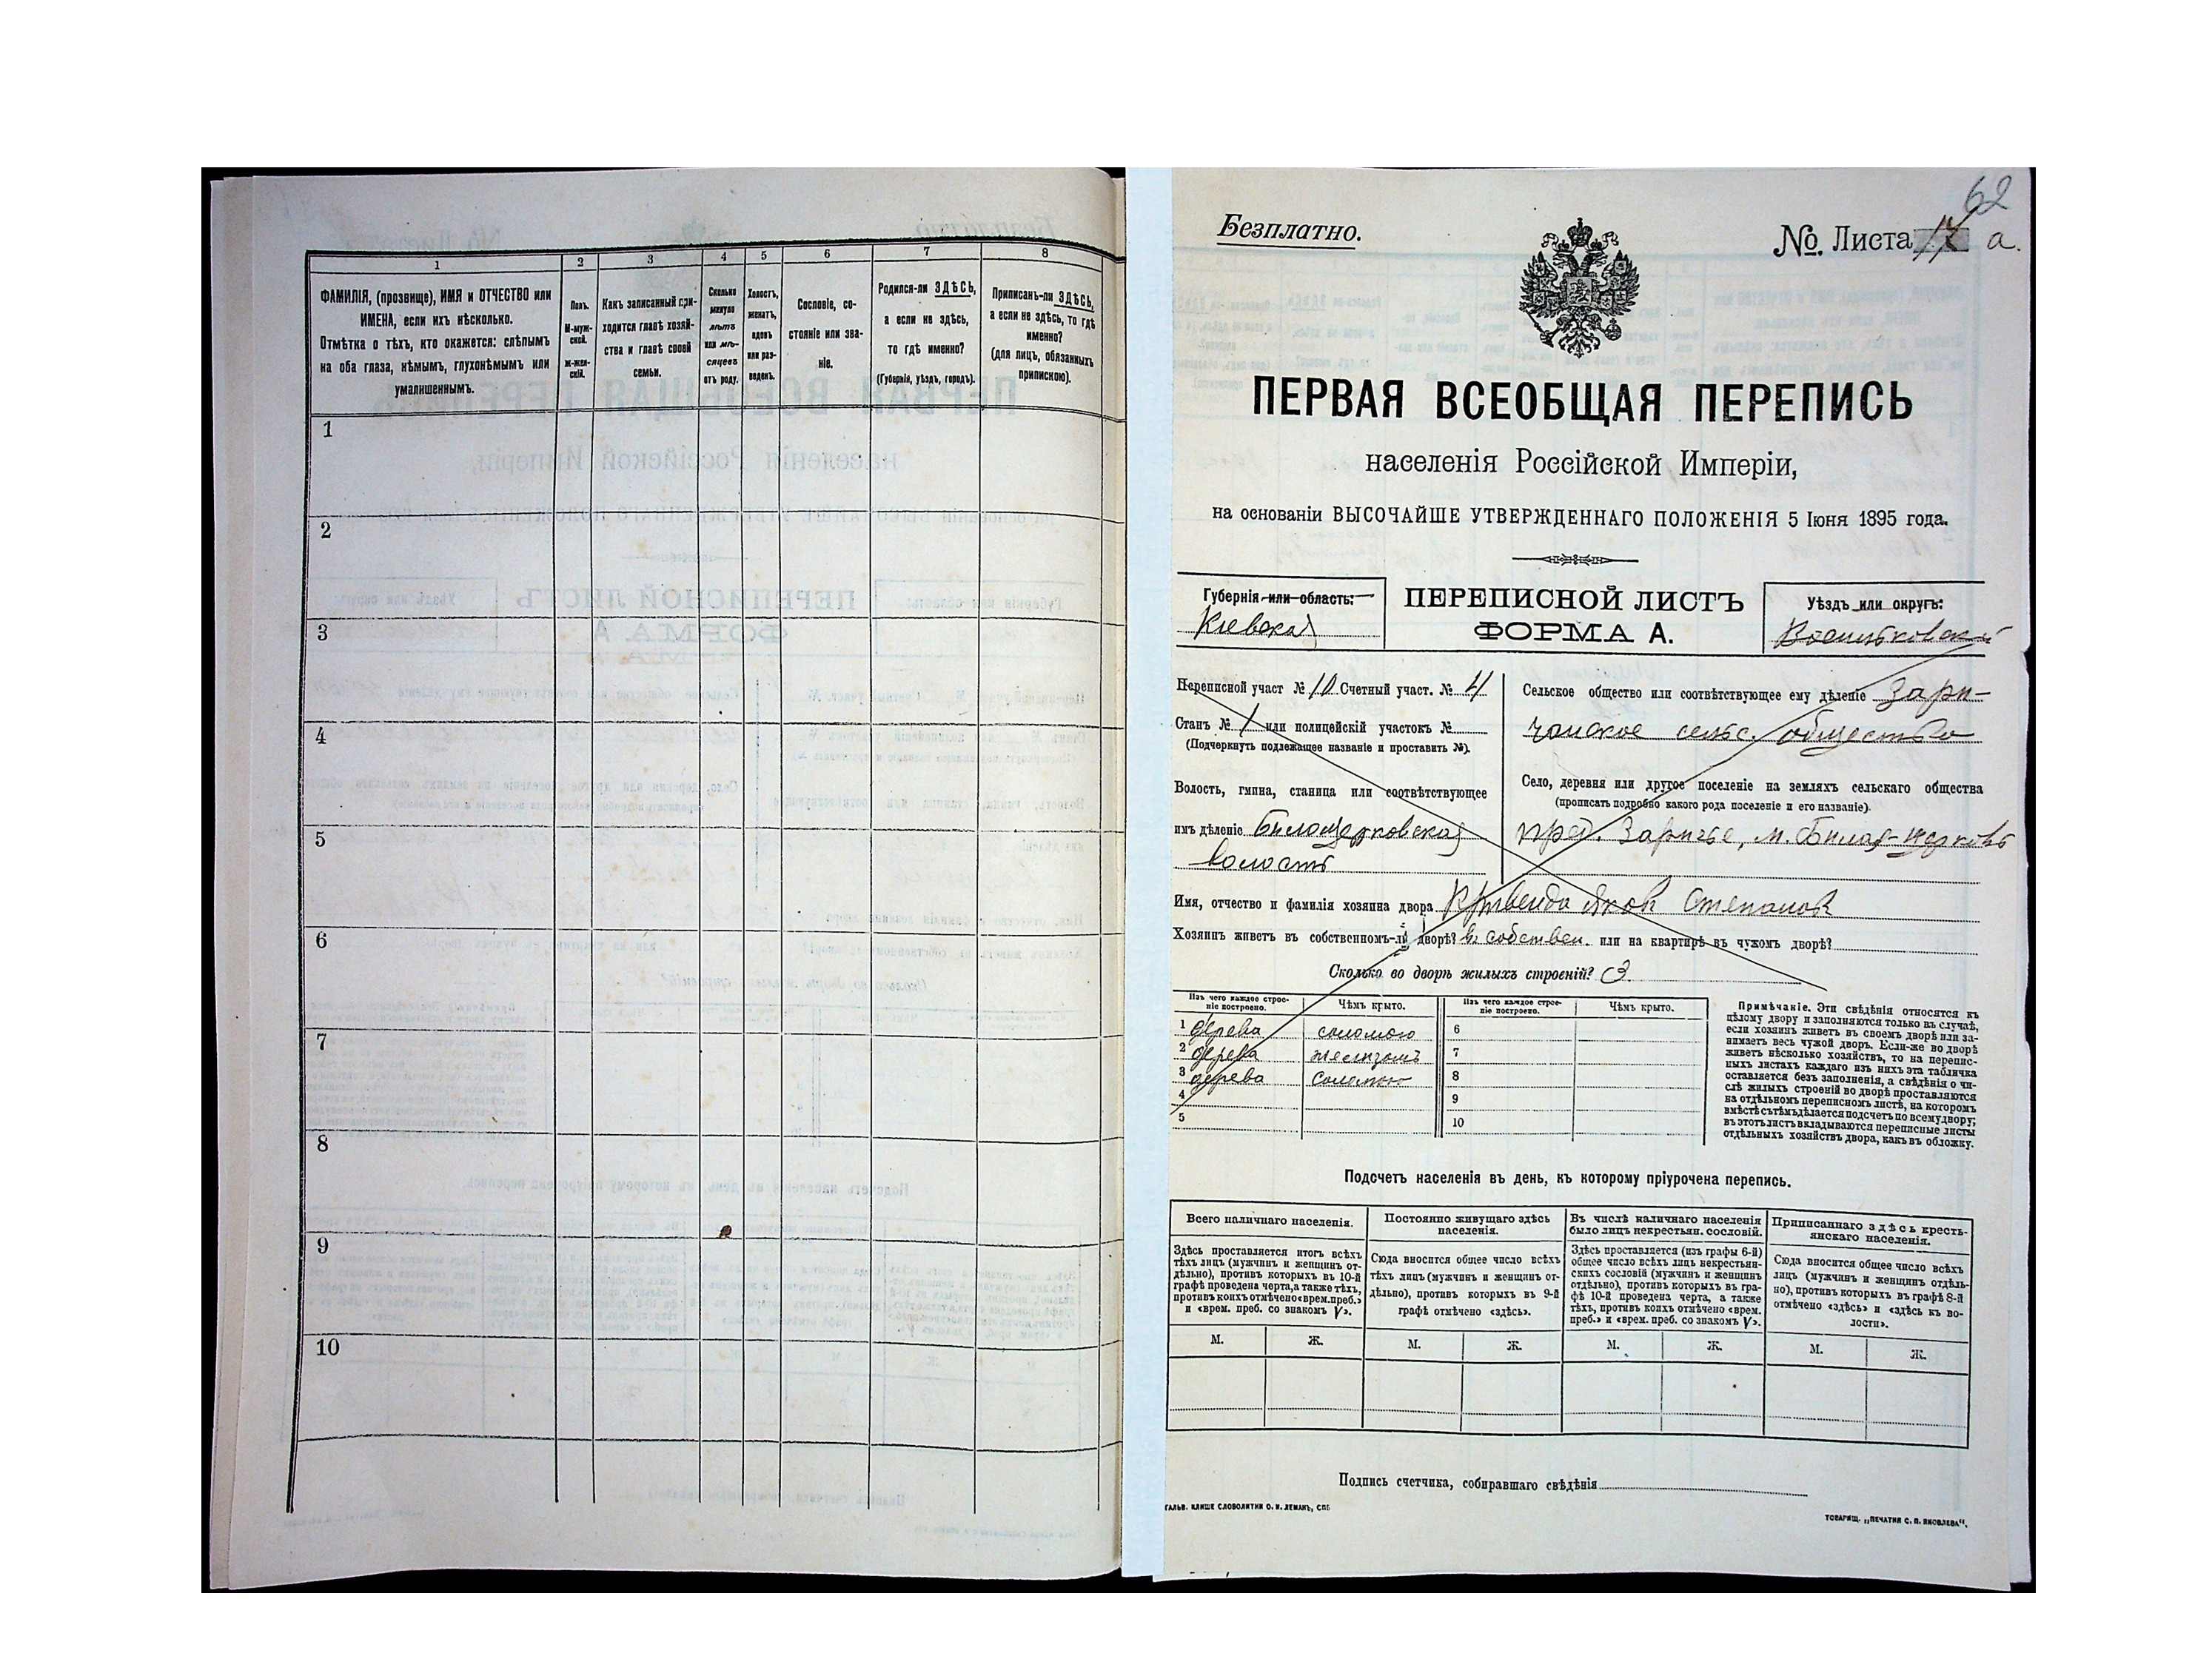 1 2 3 4 5 6 7 8
ФАМИЛІЯ, (прозвище), ИМЯ и ОТЧЕСТВО или
ИМЕНА, если ихъ нѣсколько.
Отмѣтка о тѣхъ, кто окажется: слѣпымъ
на оба глаза, нѣмымъ, глухонѣмымъ или
умалишеннымъ.
Полъ.
М-муж-
ской.
Ж-жен-
скій.
Какъ записанный при-
ходится главѣ хозяй-
ства и главѣ своей
семьи.
Сколько
минуло
лѣтъ
или мѣ-
сяцевъ
отъ роду.
Холостъ,
женатъ,
вдовъ
или раз-
веденъ.
Сословіе, со-
стояніе или зва-
ніе.
Родился-ли ЗДѢСЬ,
а если не здѣсь,
то гдѣ именно?
(Губернія, уѣздъ, городъ).
Приписанъ-ли ЗДѢСЬ,
а если не здѣсь, то гдѣ
именно?
(для лицъ, обязанныхъ
припискою).
1
2
3
4
5
6
7
8
9
10
62
Безплатно.
№ Листа 17 а.
ПЕРВАЯ ВСЕОБЩАЯ ПЕРЕПИСЬ
населенія Россійской Имперіи,
на основаніи ВЫСОЧАЙШЕ УТВЕРЖДЕННАГО ПОЛОЖЕНІЯ 5 Іюня 1895 года.
Губернія или область:
Кіевская
ПЕРЕПИСНОЙ ЛИСТЪ
ФОРМА А.
Уѣздъ или округъ:
Переписной участ № 10 Счетный участ. № 4
Станъ № 1 или полицейскій участокъ №
(Подчеркнуть подлежащее названіе и проставить №).
Волость, гмина, станица или соотвѣтствующее
имъ дѣленіе Билоцерковская
волость
Сельское общество или соотвѣтствующее ему дѣленіе Зари-
чанское сельс. общество
Село, деревня или другое поселеніе на земляхъ сельскаго общества
(прописать подробно какого рода поселеніе и его названіе).
пред. Заричье, м. Билая-церковь
Имя, отчество и фамилія хозяина двора Кривенда Яков Степанов
Хозяинъ живетъ въ собственномъ-ли дворѣ? в. собствен. или на квартирѣ въ чужомъ дворѣ?
Сколько во дворѣ жилыхъ строеній? 3.
Изъ чего каждое строе-
ніе построено.
Чѣмъ крыто.
Изъ чего каждое строе-
ніе построено.
Чѣмъ крыто.
1 дерева соломою 6
2 дерева 7
3 дерева соломою 8
4 9
5 10
Примѣчаніе. Эти свѣдѣнія относятся къ
цѣлому двору и заполняются только въ случаѣ,
если хозяинъ живетъ въ своемъ дворѣ или за-
нимаетъ весь чужой дворъ. Если-же во дворѣ
живетъ нѣсколько хозяйствъ, то на перепис-
ныхъ листахъ каждаго изъ нихъ эта табличка
оставляется безъ заполненія, а свѣдѣнія о чи-
слѣ жилыхъ строеній во дворѣ проставляются
на отдѣльномъ переписномъ листѣ, на которомъ
вмѣстѣ съ тѣмъ дѣлается подсчетъ по всему двору;
въ этотъ листъ вкладываются переписные листы
отдѣльныхъ хозяйствъ двора, какъ въ обложку.
Подсчетъ населенія въ день, къ которому пріурочена перепись.
Всего наличнаго населенія.
Здѣсь проставляется итогъ всѣхъ
тѣхъ лицъ (мужчинъ и женщинъ от-
дѣльно), противъ которыхъ въ 10-й
графѣ проведена черта, а также тѣхъ,
противъ коихъ отмѣчено «врем. преб.»
и «врем. преб. со знакомъ V».
Постоянно живущаго здѣсь
населенія.
Сюда вносится общее число всѣхъ
тѣхъ лицъ (мужчинъ и женщинъ от-
дѣльно), противъ которыхъ въ 9-й
графѣ отмѣчено «здѣсь».
Въ числѣ наличнаго населенія
было лицъ некрестьян. сословій.
Здѣсь проставляется (изъ графы 6-й)
общее число всѣхъ лицъ некрестьян-
скихъ сословій (мужчинъ и женщинъ
отдѣльно), противъ которыхъ въ гра-
фѣ 10-й проведена черта, а также
тѣхъ, противъ коихъ отмѣчено «врем.
преб.» и «врем. преб. со знакомъ V».
Приписаннаго здѣсь кресть-
янскаго населенія.
Сюда вносится общее число всѣхъ
лицъ (мужчинъ и женщинъ отдѣль-
но), противъ которыхъ въ графѣ 8-й
отмѣчено «здѣсь» и «здѣсь къ во-
лости».
М. Ж. М. Ж. М. Ж. М. Ж.
Подпись счетчика, собиравшаго свѣдѣнія
ГАЛЬВ. КЛИШЕ СЛОВОЛИТНИ О. И. ЛЕМАНЪ, СПБ
ТОВАРИЩ. „ПЕЧАТНЯ С. П. ЯКОВЛЕВА“.